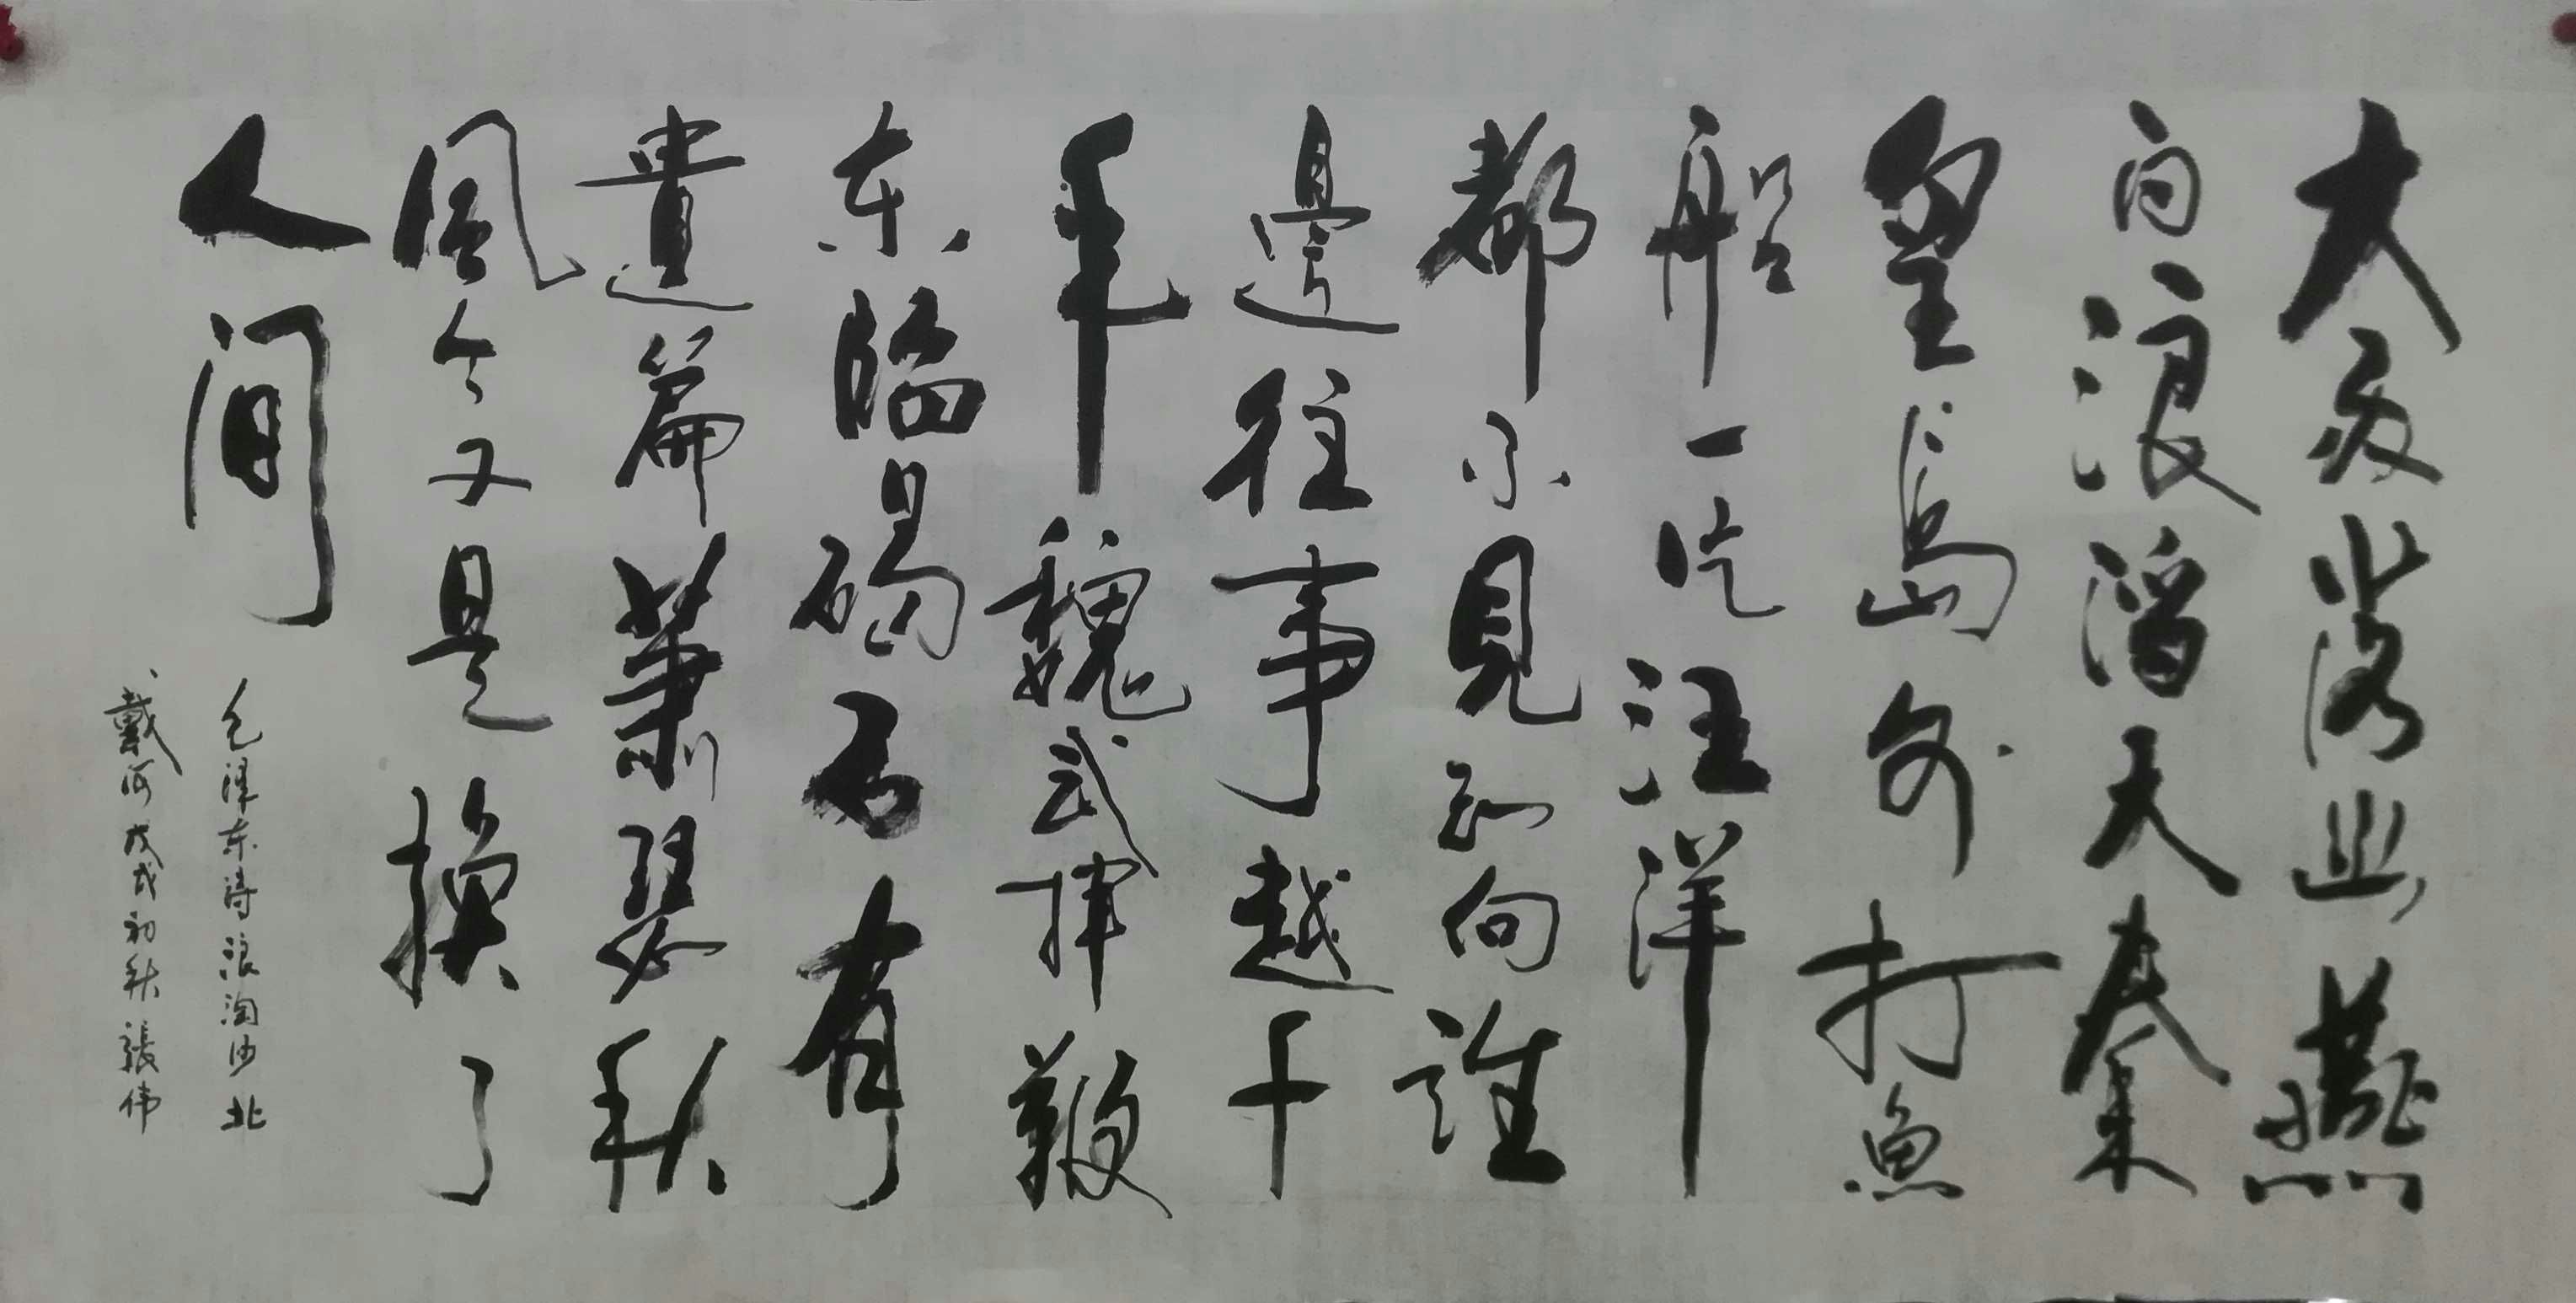 大雨落幽燕
白浪滔天秦
皇岛外打魚
船一片汪洋
都不見知向誰
邊往事越千
年魏武揮鞭
东臨碣石有
遺篇蕭瑟秋
風今又是换了
人间
毛澤东詩浪淘沙北
戴河戊戌初秋張伟